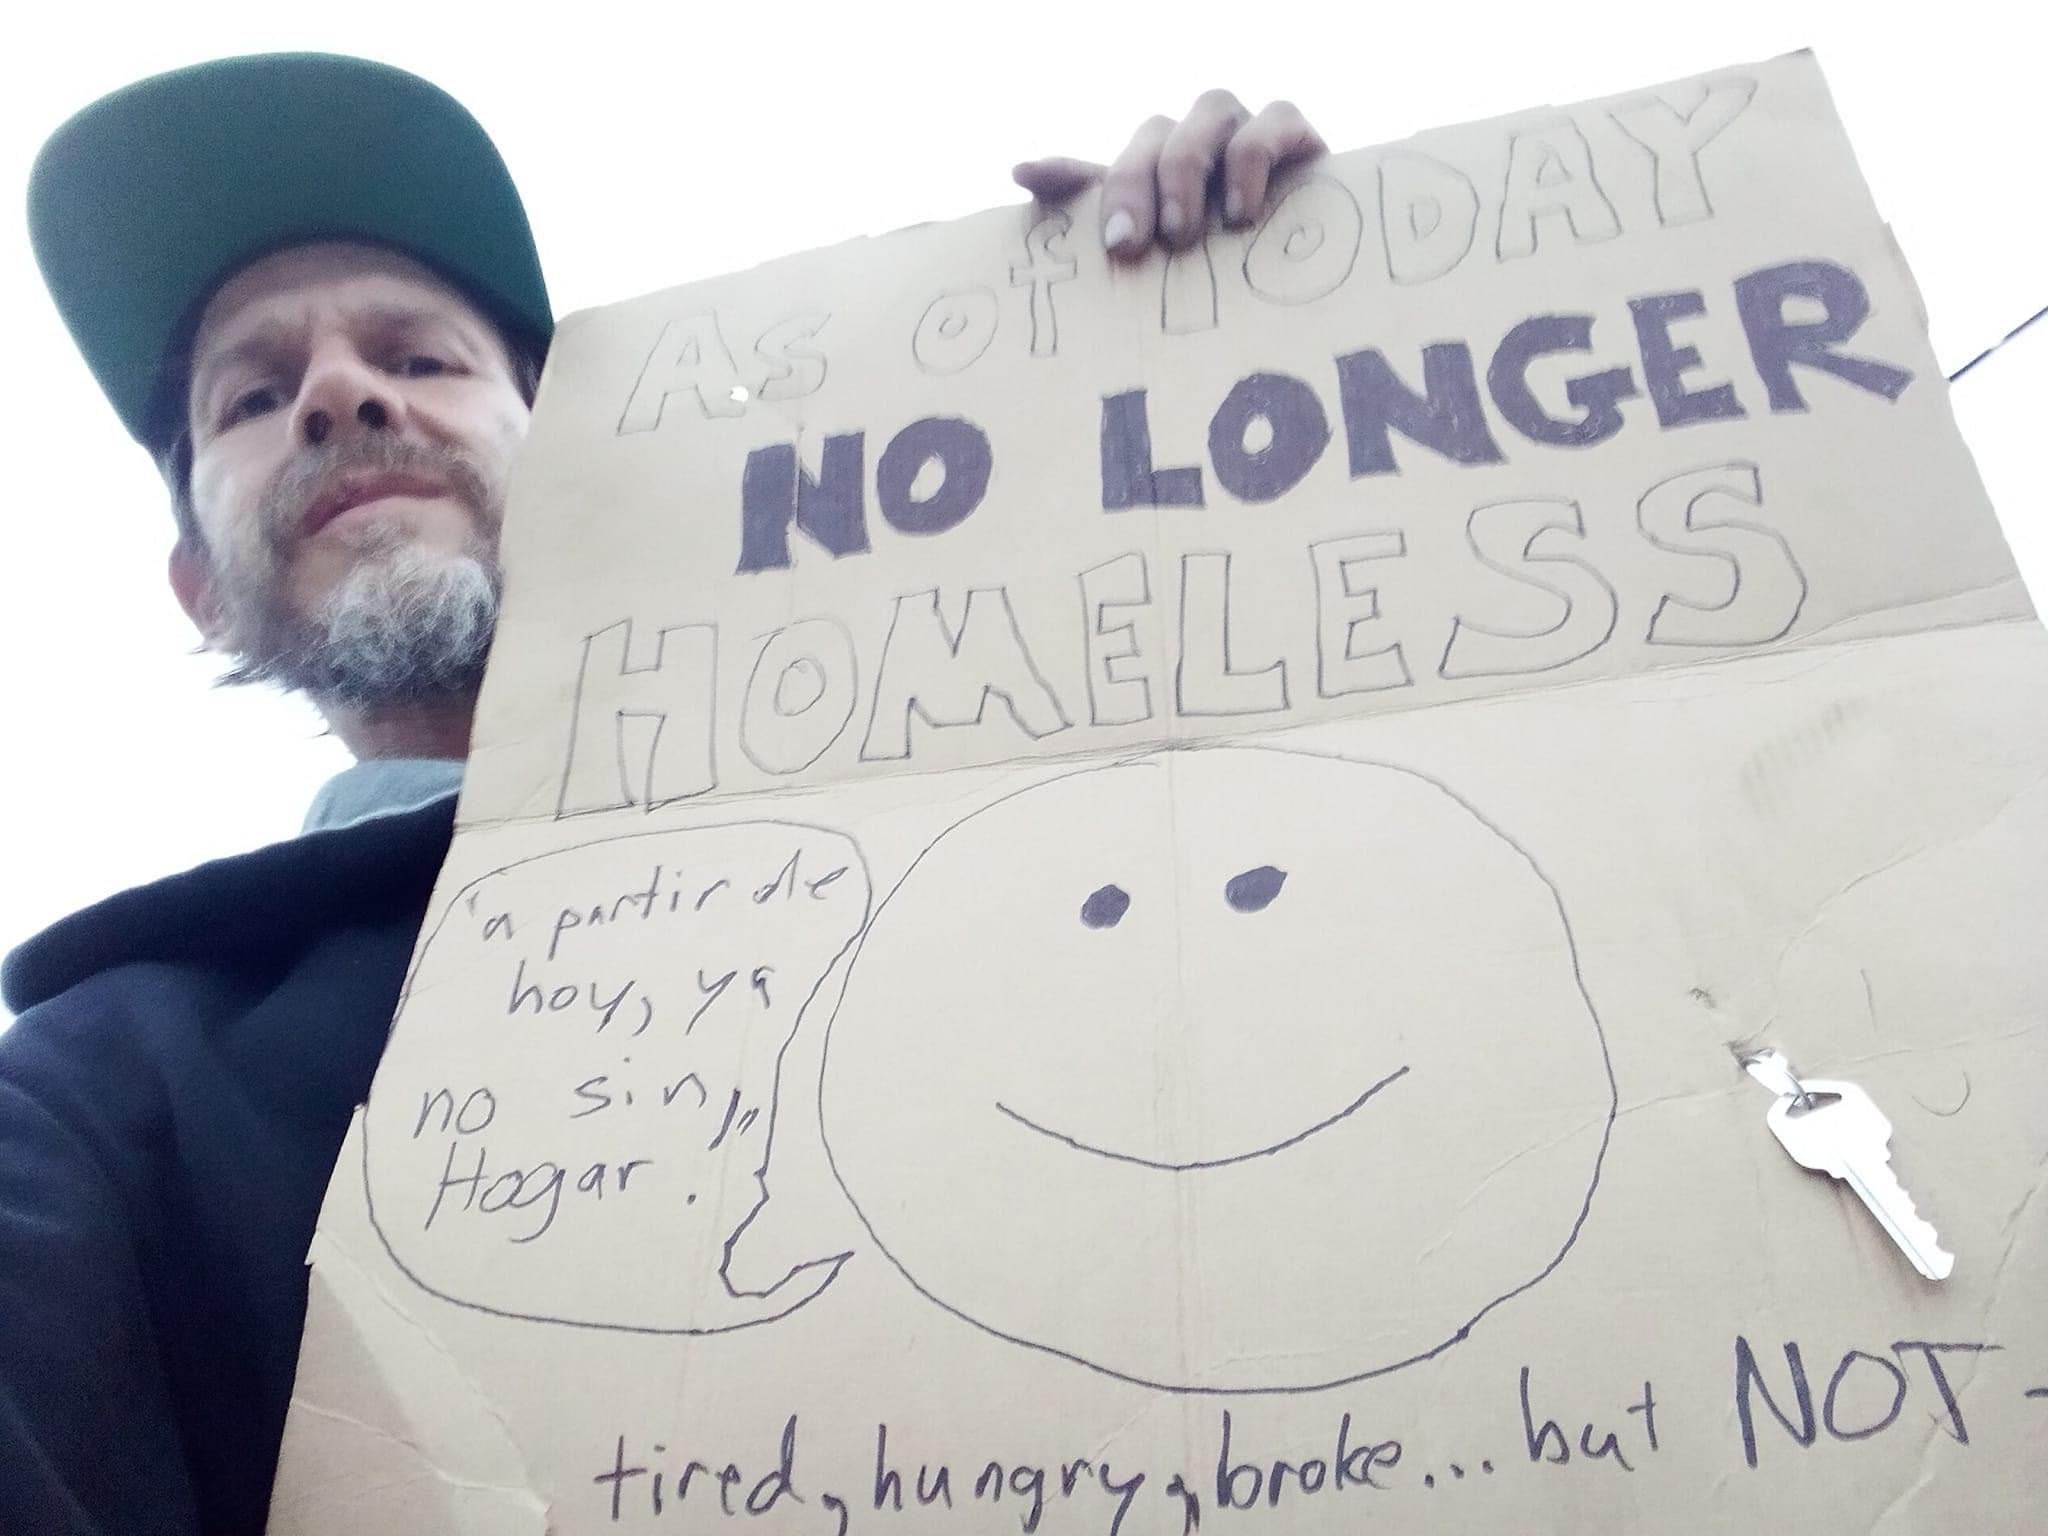 As of TODAY
NO LONGER
HOMELESS
"a partir de
hoy, ya
no sin,"
Hogar.
tired, hungry, broke... but NOT